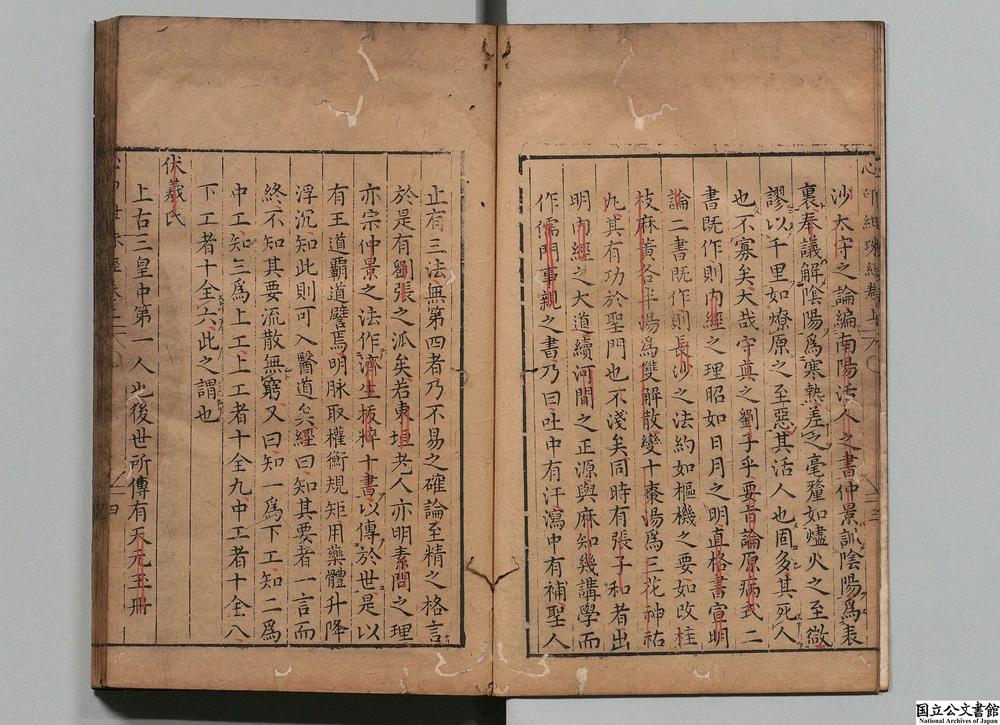 沙太守之論編南陽活人之書仲景訓陰陽爲表
裏奉議解陰陽爲寒熱差之毫釐如爝火之至微
謬以千里如燎原之至惡其活人也固多其死人
也不寡矣大哉守真之劉子乎要旨論原病式二
書既作則內經之理昭如日月之明直格書宣明
論二書既作則長沙之法約如樞機之要如改桂
枝麻黃各半湯爲雙解散變十棗湯爲三花神祐
丸其有功於聖門也不淺矣同時有張子和者出
明內經之大道續河間之正源與麻知幾講學而
作儒門事親之書乃曰吐中有汗瀉中有補聖人
止有三法無第四者乃不易之確論至精之格言
於是有劉張之派矣若東垣老人亦明素問之理
亦宗仲景之法作濟生拔粹十書以傳於世是以
有王道霸道譬焉明脉取權衡規矩用藥體升降
浮沉知此則可入醫道矣經曰知其要者一言而
終不知其要流散無窮又曰知一爲下工知二爲
中工知三爲上工上工者十全九中工者十全八
下工者十全六此之謂也
伏羲氏
上古三皇中第一人也後世所傳有天元玉册
国立公文書館
National Archives of Japan